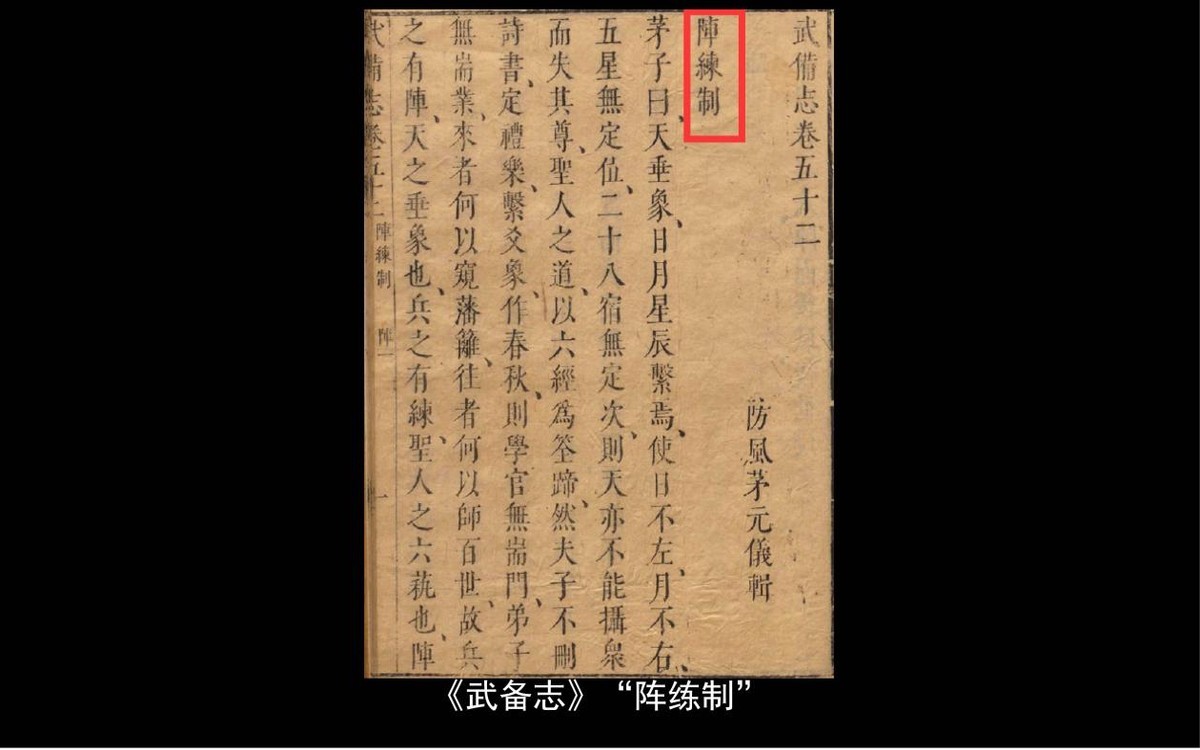 武備志卷五十二
防風茅元儀輯
陣練制
茅子曰、天垂象、日月星辰繫焉、使日不左、月不右、
五星無定位、二十八宿無定次、則天亦不能攝衆
而失其尊、聖人之道、以六經為筌蹄、然夫子不刪
詩書、定禮樂、繫爻象、作春秋、則學官無耑門、弟子
無耑業、來者何以窺藩籬、往者何以師百世、故兵
之有陣、天之垂象也、兵之有練、聖人之六蓺也、陣
武備志卷五十二 陣練制 陣一 一
《武备志》“阵练制”